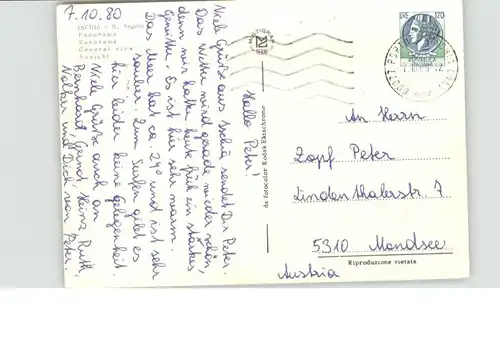 7.10.80
ISCHIA - S. Angelo
Panorama
Panorama
General view
Ansicht
Hallo Peter.
Viele Grüße aus Ischia sendet Dir Peter.
Das Wetter wird gerade wieder schön,
denn wir hatten heute früh ein starkes
Gewitter. Es ist hier sehr warm.
Das Meer hat ca. 24° und ist sehr
sauber. Zum Surfen gibt es
hier leider keine gelegenheit.
Viele Grüße auch an
Bernhard, Gerind, Heinz, Ruth,
Volker und Dich, von Peter.
da fotocolor Kodak Ektachrome
120
An Herrn
Zopf Peter
Lindenthalerstr. 7
5310 Mondsee
Austria
Riproduzione vietata